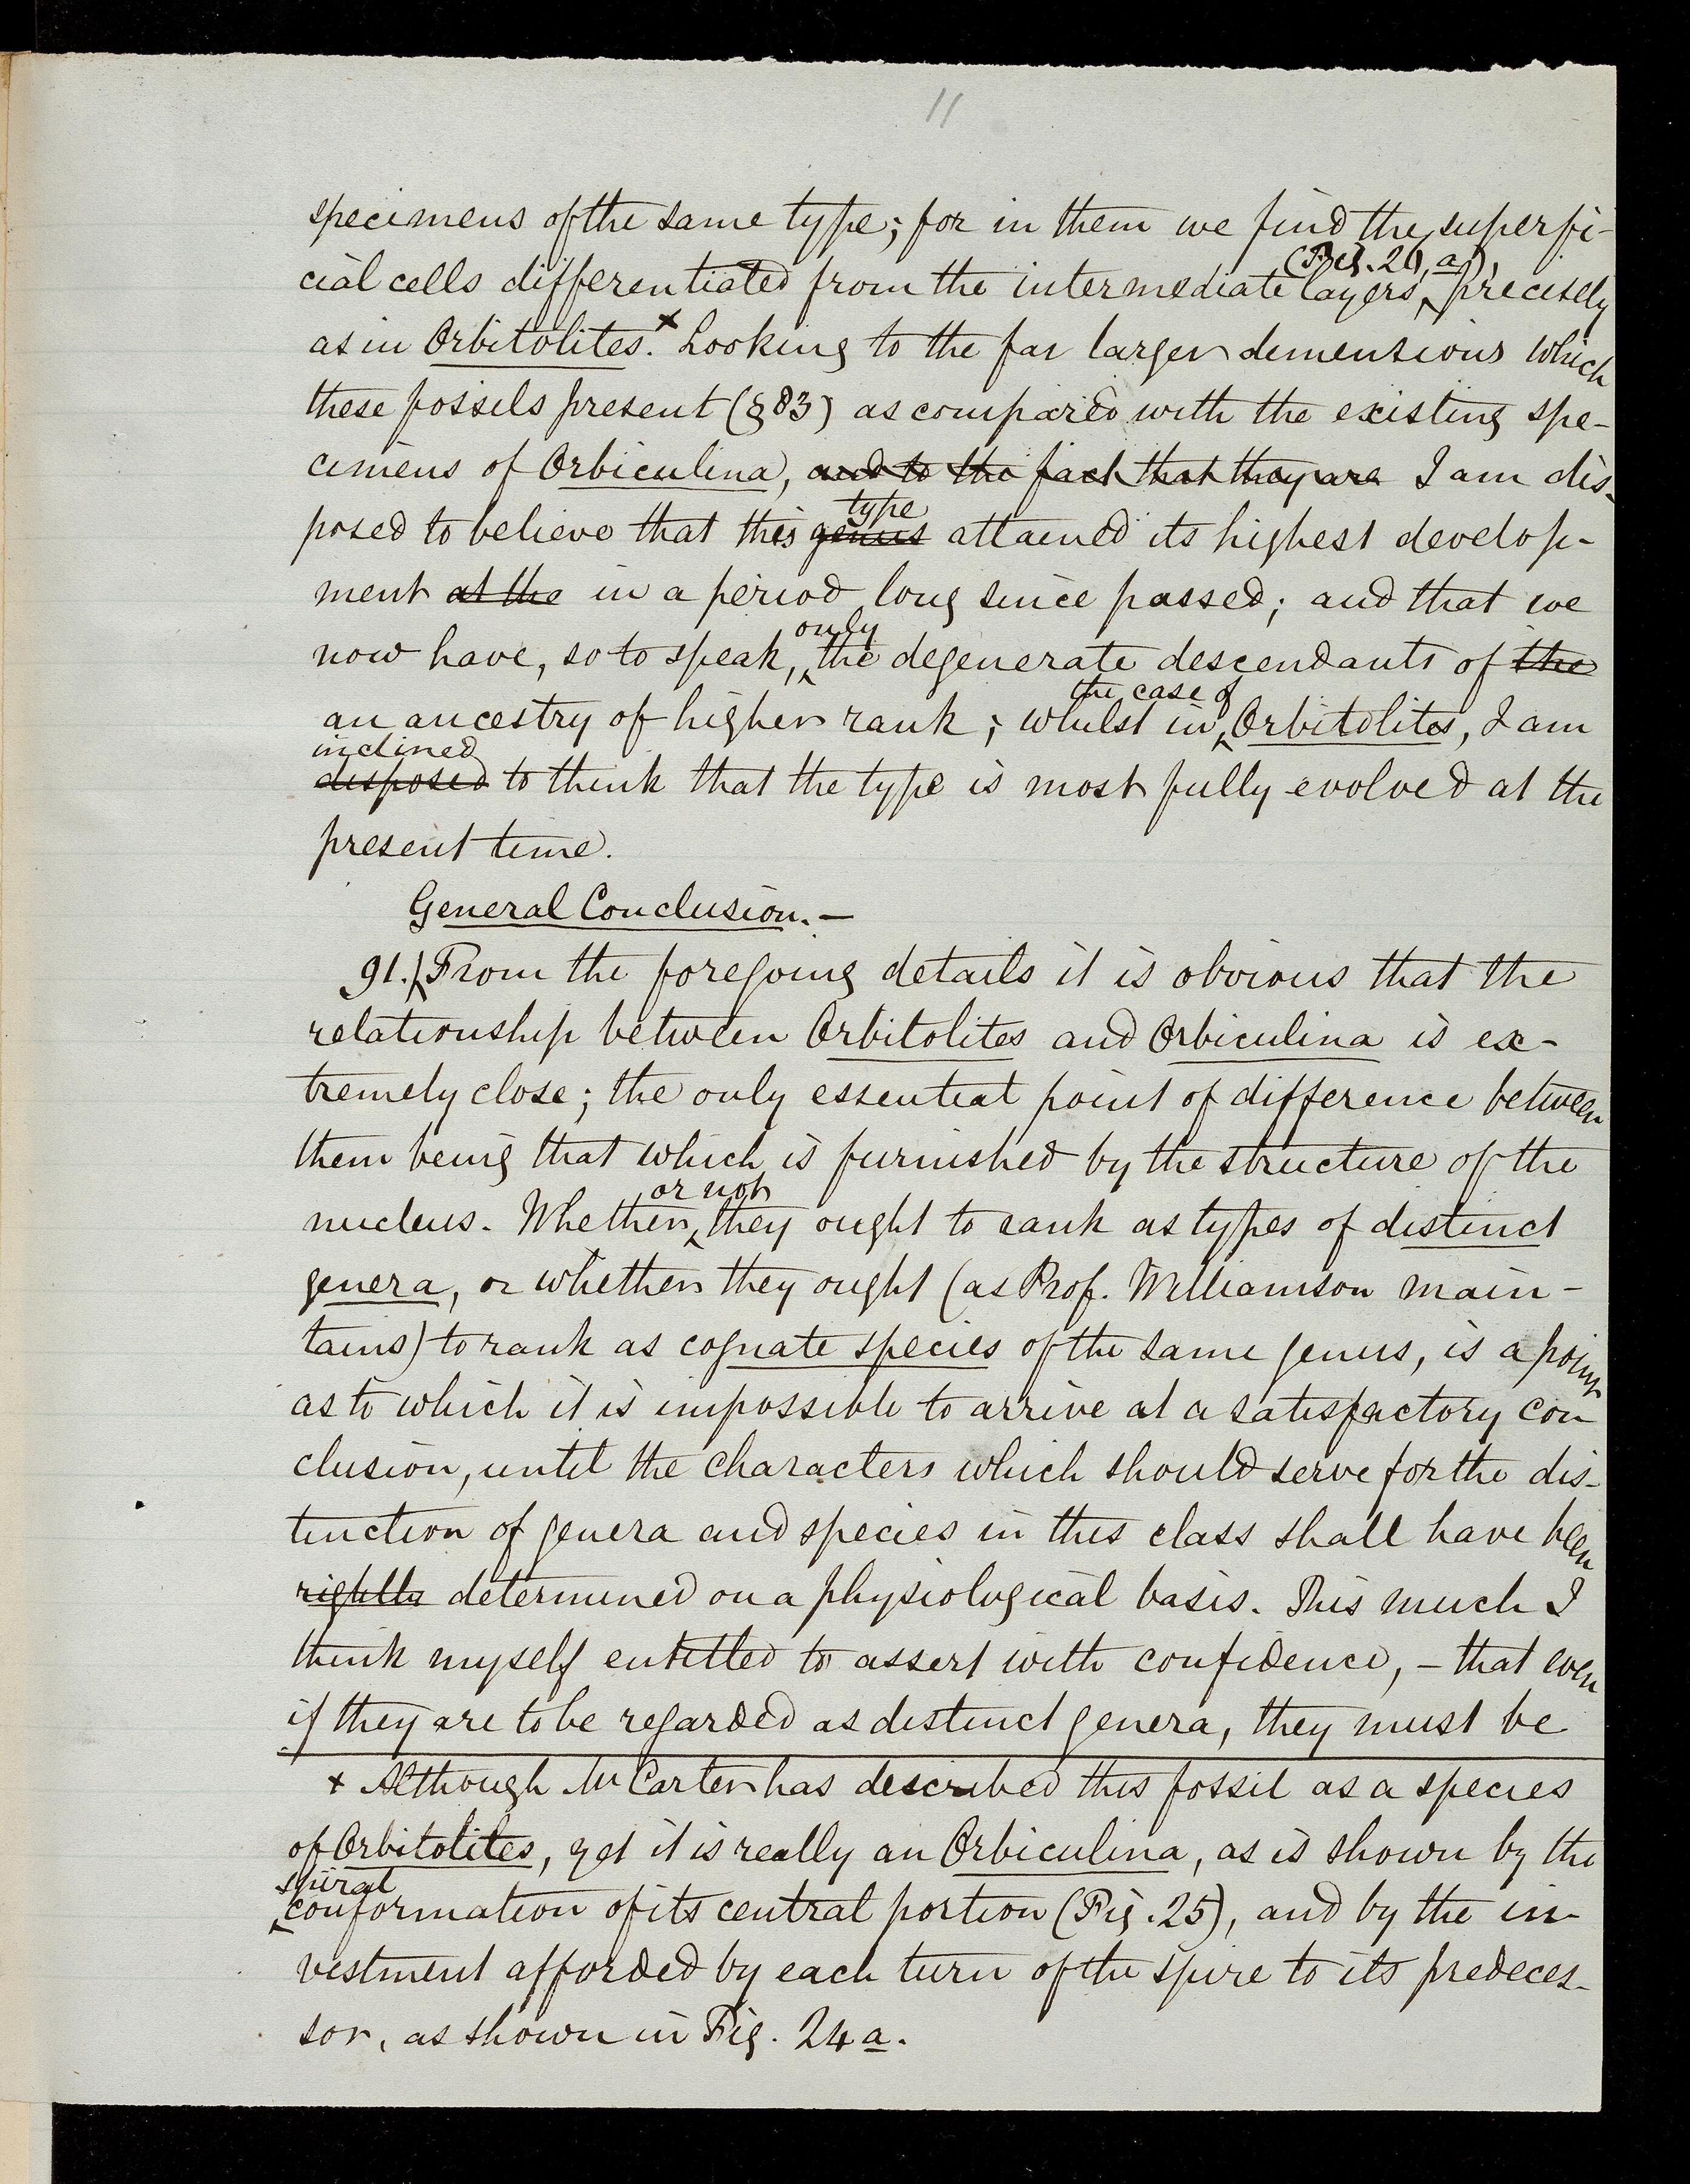 11
specimens of the same type; for in them we find the superfi-
(Fig. 20, a),
cial cells differentiated from the intermediate layers, precisely
as in Orbitolites.x Looking to the far larger dimensions which
these fossils present (§83) as compared with the existing spe-
cimens of Orbiculina, and to the fact that they are I am dis-
type
posed to believe that this genus attained its highest develop-
ment at the in a period long since passed; and that we
only
now have, so to speak, the degenerate descendants of the
the case of
an ancestry of higher rank; whilst in Orbitolites, I am
inclined
disposed to think that the type is most fully evolved at the
present time.
General Conclusion.—
91. From the foregoing details it is obvious that the
relationship between Orbitolites and Orbiculina is ex-
tremely close; the only essential point of difference between
them being that which is furnished by the structure of the
or not
nucleus. Whether they ought to rank as types of distinct
genera, or whether they ought (as Prof. Williamson main-
tains) to rank as cognate species of the same genus, is a point
as to which it is impossible to arrive at a satisfactory con
clusion, until the characters which should serve for the dis-
tinction of genera and species in this class shall have been
rightly determined on a physiological basis. This much I
think myself entitled to assert with confidence, – that even
if they are to be regarded as distinct genera, they must be
x Although Mr Carter has described this fossil as a species
of Orbitolites, yet it is really an Orbiculina, as is shown by the
spiral
conformation of its central portion (Fig. 25), and by the in-
vestment afforded by each turn of the spire to its predeces-
sor, as shown in Fig. 24 a.